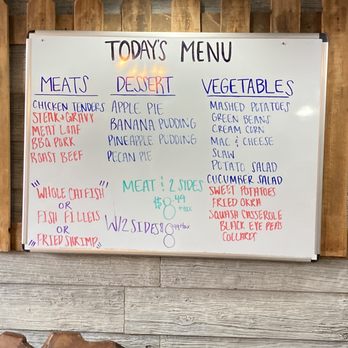 TODAY'S MENU
MEATS
CHICKEN TENDERS
STEAK + GRAVY
MEAT LOAF
BBQ PORK
ROAST BEEF
"WHOLE CATFISH"
OR
FISH FILLETS
OR
"FRIED SHRIMP"
DESSERT
APPLE PIE
BANANA PUDDING
PINEAPPLE PUDDING
PECAN PIE
MEAT & 2 SIDES
$8.49
+tax
W/2 SIDES
VEGETABLES
MASHED POTATOES
GREEN BEANS
CREAM CORN
MAC & CHEESE
SLAW
POTATO SALAD
CUCUMBER SALAD
SWEET POTATOES
FRIED OKRA
SQUASH CASSEROLE
BLACK EYE PEAS
COLLARDS